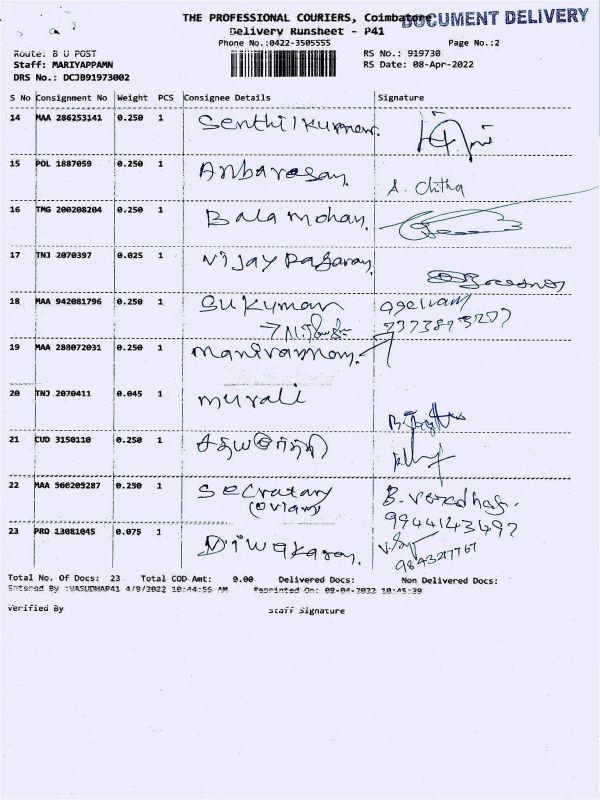 THE PROFESSIONAL COURIERS, Coimbatore
DOCUMENT DELIVERY
Delivery Runsheet - P41
Phone No.:0422-3505555
Page No.:2
Route: B U POST
RS No.: 919730
Staff: MARIYAPPAMN
RS Date: 08-Apr-2022
DRS No.: DCJB91973002
S No Consignment No Weight PCS Consignee Details Signature
14 MAA 286253141 0.250 1 Senthilkumar.
15 POL 1887059 0.250 1 Anbarasan. A. Chitha
16 TMG 200208204 0.250 1 Bala mohan.
17 TNJ 2070397 0.025 1
18 MAA 942081796 0.250 1 Sukumar
19 MAA 288072031 0.250 1
20 TNJ 2070411 0.045 1 murali
21 CUD 3150110 0.250 1
22 MAA 566205287 0.250 1 Secratary
9944143497
23 PRO 13081045 0.075 1 Diwakaran. 9843217767
Total No. Of Docs: 23 Total COD Amt: 0.00 Delivered Docs: Non Delivered Docs:
Entered By :VASUDHAP41 4/8/2022 10:44:56 AM Reprinted On: 08-04-2022 10:45:39
Verified By Staff Signature